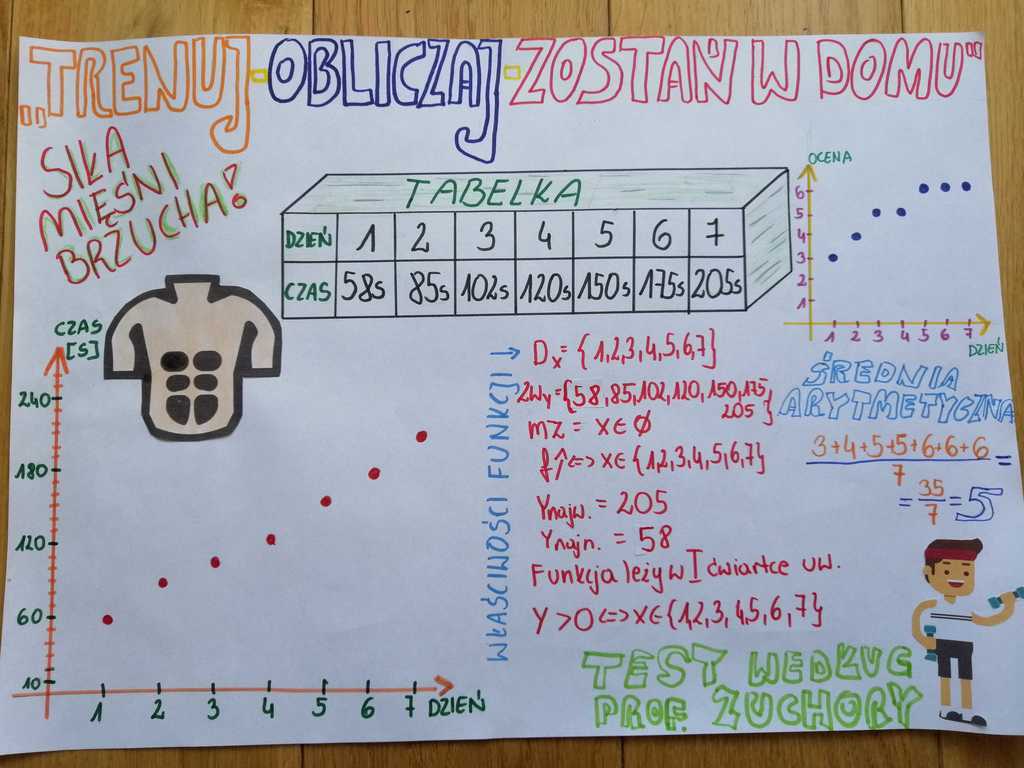 „TRENUJ-OBLICZAJ-ZOSTAŃ W DOMU"
SIŁA
MIĘŚNI
BRZUCHA!
TABELKA
DZIEŃ 1 2 3 4 5 6 7
CZAS 58s 85s 102s 120s 150s 175s 205s
OCENA
6
5
4
3
2
1
1 2 3 4 5 6 7
DZIEŃ
CZAS
[S]
240
180
120
60
10
1 2 3 4 5 6 7 DZIEŃ
WŁAŚCIWOŚCI FUNKCJI →
Dx = {1,2,3,4,5,6,7}
ZWy = {58,85,102,120,150,175,
205}
MZ = X ∈ Ø
f↑ <=> X ∈ {1,2,3,4,5,6,7}
Ynajw. = 205
Ynajn. = 58
Funkcja leży w I ćwiartce uw.
Y > 0 <=> X ∈ {1,2,3,4,5,6,7}
ŚREDNIA
ARYTMETYCZNA
3+4+5+5+6+6+6 =
7
= 35/7 = 5
TEST WEDŁUG
PROF. ZUCHORY